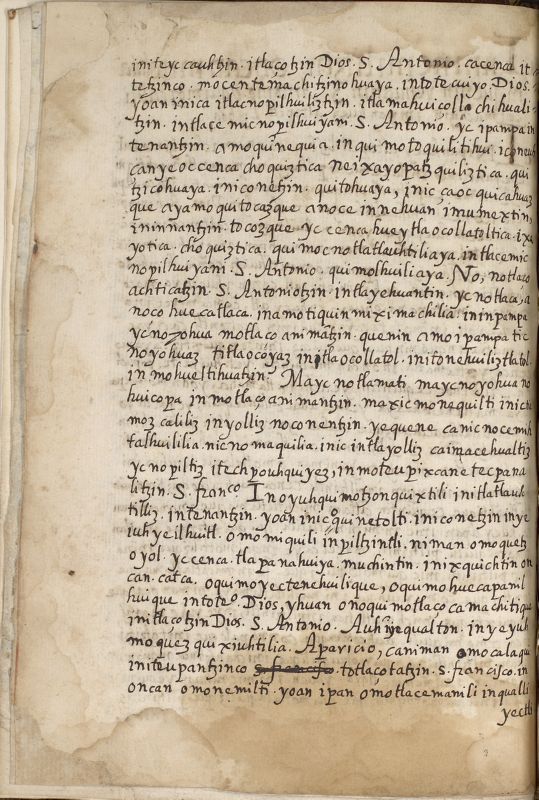 initeyc cauhtzin. itlaçotzin Dios. S. Antonio. cacenca it
tetzinco. mocentemachitzinohuaya. intotecuiyo. Dios.
yoan inica itlacnopilhuiliztzin. itlamahuicolla chihuali
tzin. intlacemicnopilhuiyani. S. Antonio. yc ipampa in
tenantzin. amo quinequia. in qui motoquilitihui. iconeuh
can ye occenca choquiztica neixayopatzquiliztica. qui
tzicohuaya. iniconetzin. quitohuaya, inic çaoc quicahuaz
que aya moquitocazque anoce innehuan imumextin,
in innantzin. tocozque yc cenca huey tlaocollatoltica. ixa
yotica. choquiztica. quimocnotlatlauhtiliaya. intlacemic
nopilhuiyani. S. Antonio. quimolhuiliaya. No, notlaço
achticatzin. S. Antoniotzin. intlayehuantin. yc notlaca, a
noco huecatlaca. inamotiquinmiximachilia. ininpampa
ycnoyohua motlaço animatzin. quenin amo ipampa tic
noyohuaz titlaocoyaz initlaocollatol. initonehuiliztlatol
in mohueltihuatzin. Mayc notlamati mayc noyohua no
huicopa in motlaço animantzin. maxicmonequilti inic nu
moz caliliz inyolliz noconentzin. yequene canic nocemih
talhuililia. nicnomaquilia. inic intlayolliz caimacehualtiz
ycnopiltiz itechpouhquiyez, in moteupixcanetecpana
liztzin. S. franco. Inoyuhquimotzonquixtili initlatlauh
tilliz. intenantzin. yoan inic oquinetolti. iniconetzin inye
iuh yeilhuitl. omomiquili inpiltzintli. niman omoquetz
oyol. yccenca. tlapanahuiya. muchintin. inixquichtin on
can. catca. oquimoyectenehuilique, oquimohuecapanil
huique intoteo Dios, yhuan onoquimotlaçocamachitique
initlaçotzin Dios. S. Antonio. Auh iniequalton. inyeyuh
moquezquixiuhtilia. Aparicio, caniman omocalaqui
initeupantzinco S. francisco totlaçotatzin. S. francisco. in
oncan omonemilti. yoan ipan omotlacemanili inqualli
yectli